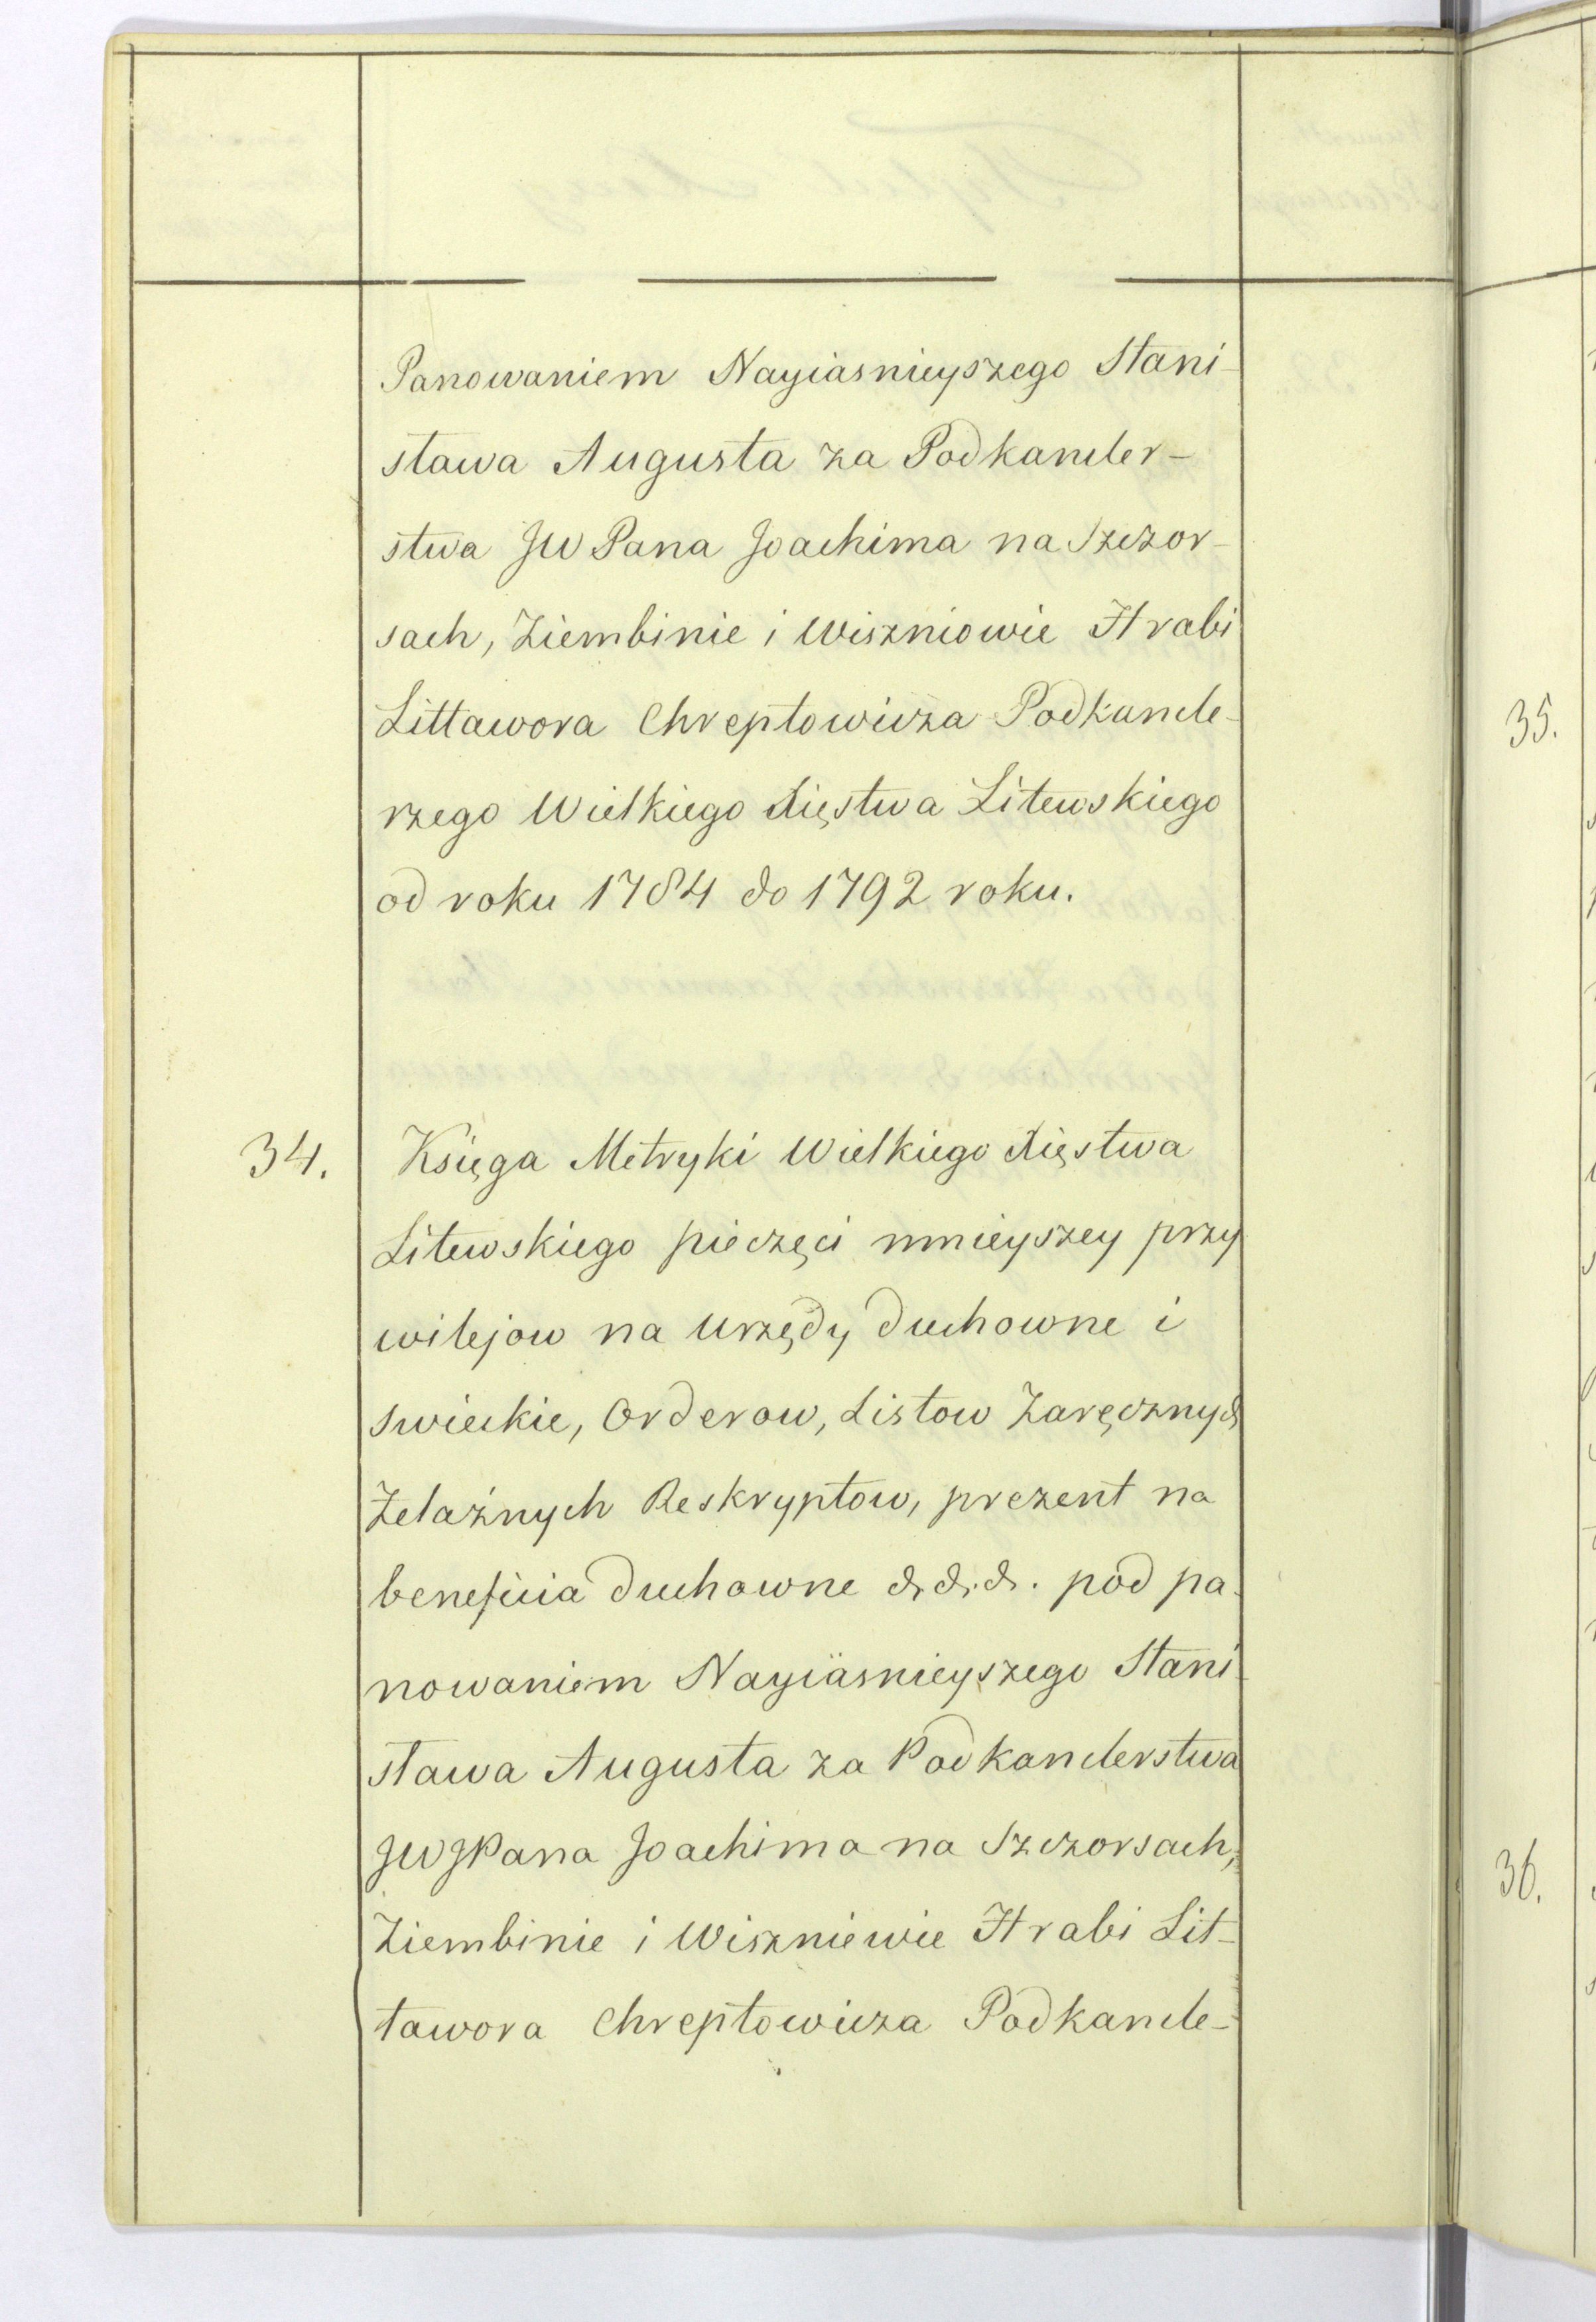 Panowaniem Nayiasnieyszego Stani-
sława Augusta za Podkancler-
stwa JW Pana Joachima na Szczor-
sach, Ziembinie i Wiszniowie Hrabi
Littawora Chreptowicza Podkancle-
rzego Wielkiego Xięstwa Litewskiego
od roku 1784 do 1792 roku.
34. Księga Metryki Wielkiego Xięstwa
Litewskiego pieczęci mnieyszey przy
wilejow na Urzędy duchowne i
swieckie, Orderow, Listow Zaręcznych
Żelaźnych Reskryptow, prezent na
beneficia duchowne &.&.&. pod pa-
nowaniem Nayiäsnieyszego Stani-
sława Augusta za Podkanclerstwa
JWJPana Joachima na Szczorsach,
Ziembinie i Wiszniewie Hrabi Lit-
tawora Chreptowicza Podkancle-
35.
36.